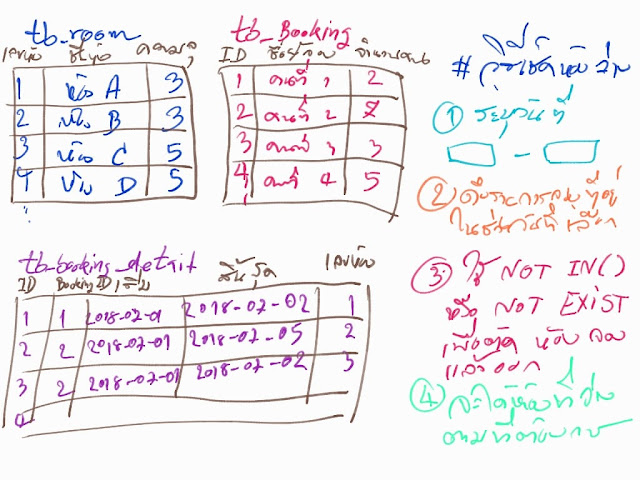 tb_room
เลขห้อง ชื่อห้อง ความจุ
1 ห้อง A 3
2 ห้อง B 3
3 ห้อง C 5
4 ห้อง D 5
tb_Booking
ID ชื่อผู้จอง จำนวนคน
1 คนที่ 1 2
2 คนที่ 2 7
3 คนที่ 3 3
4 คนที่ 4 5
tb_booking_detail
ID Booking ID เริ่ม สิ้นสุด เลขห้อง
1 1 2018-02-01 2018-02-02 1
2 2 2018-02-01 2018-02-05 2
3 2 2018-02-01 2018-02-02 3
4
# วิธีเช็คห้องว่าง
① ระบุวันที่
-
② ดึงรายการจองที่อยู่
ในช่วงวันที่เลือก
③ ใช้ NOT IN()
หรือ NOT EXIST
เพื่อตัด ห้อง จอง
แล้วออก
④ จะได้ห้องที่ว่าง
ตามที่ต้องการ